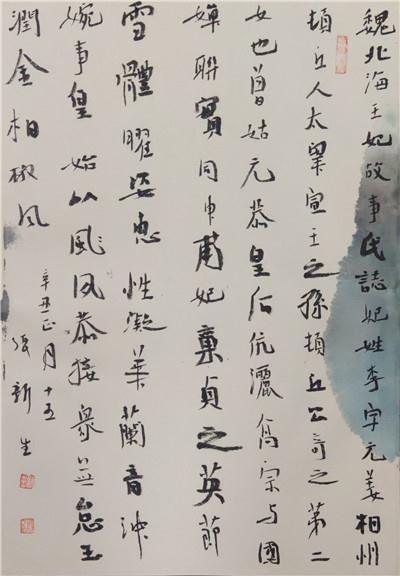 魏北海王妃故事氏誌妃姓李字元姜相州
頓丘人太宰宣王之孫頓丘公奇之第二
女也曾姑元恭皇后伉灑高宗与國
嬋聯實同申甫妃稟貞之英節
雪體曜姿惠性凝華蘭音沖
婉事皇姑以夙恭接衆無怠玉
潤金相椒风
辛丑正月十五
新生